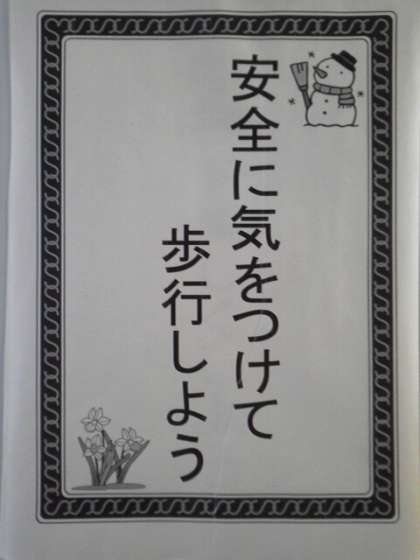 安全に気をつけて
歩行しよう